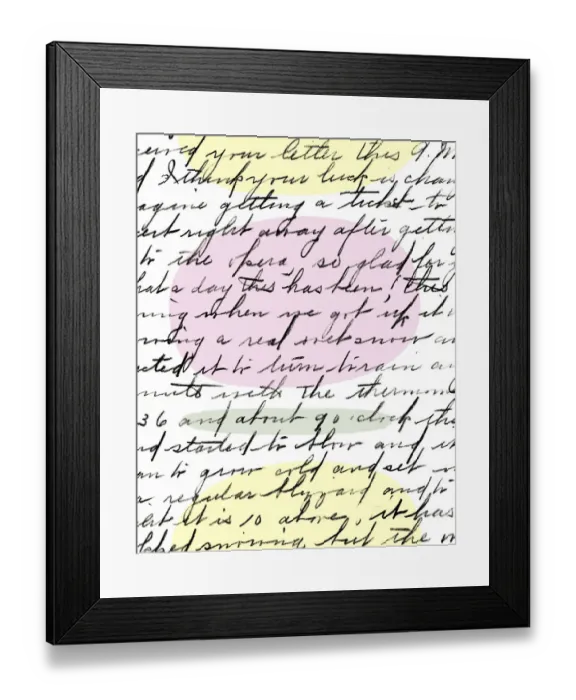 your letter this A.M.
I think your luck is chan
agine getting a ticket to
right away after gettin
to the opera, so glad for
hat a day this has been! this
ing when we got up it
ning a real wet snow an
it to turn to rain an
with the thermom
36 and about 9 o'clock the
nd started to blow and it
to grow cold and set
a regular blizzard and to
it is 10 above, it has
snowing, but the w